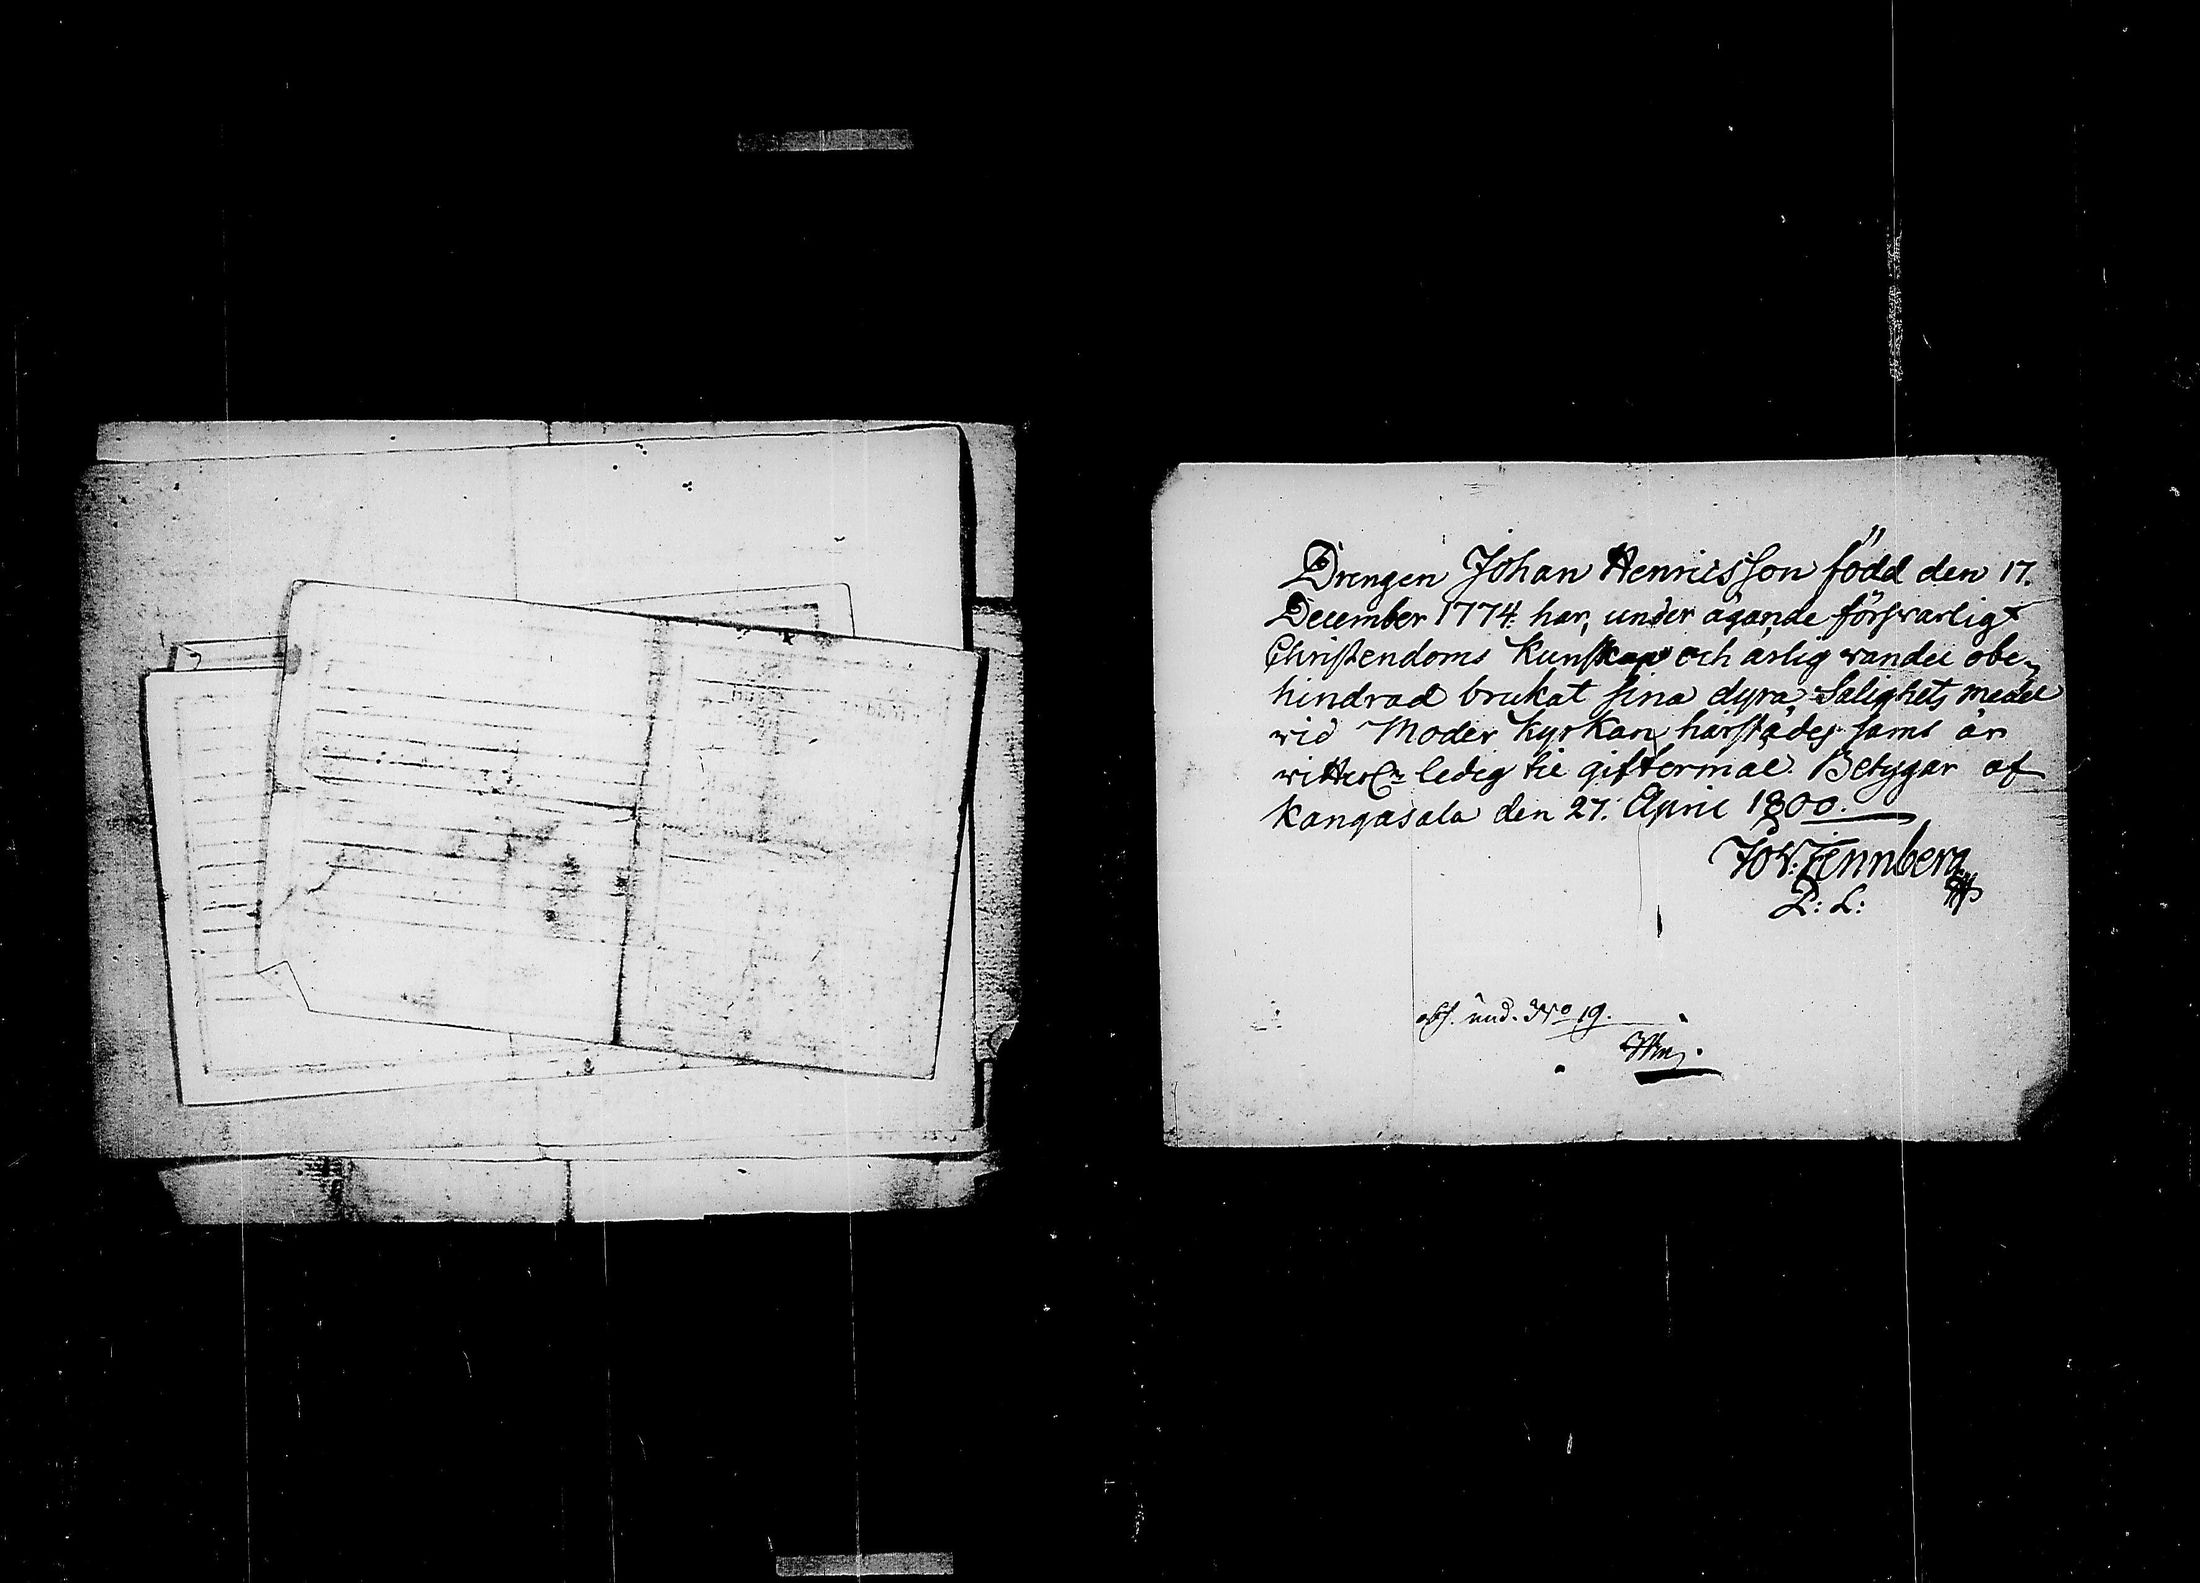 Drengen Johan Henricsson född den 17.
December 1774. har, under ägande försvarligt
Christendoms Kunskap och ärlig vandel obe-
hindrad brukat sina dyra Salighets medel
vid Moder Kyrkan härstädes samt är
ledig til giftermål. Betygar af
Kangasala den 27. April 1800.
Zennberg
P: L:
und. No 19.